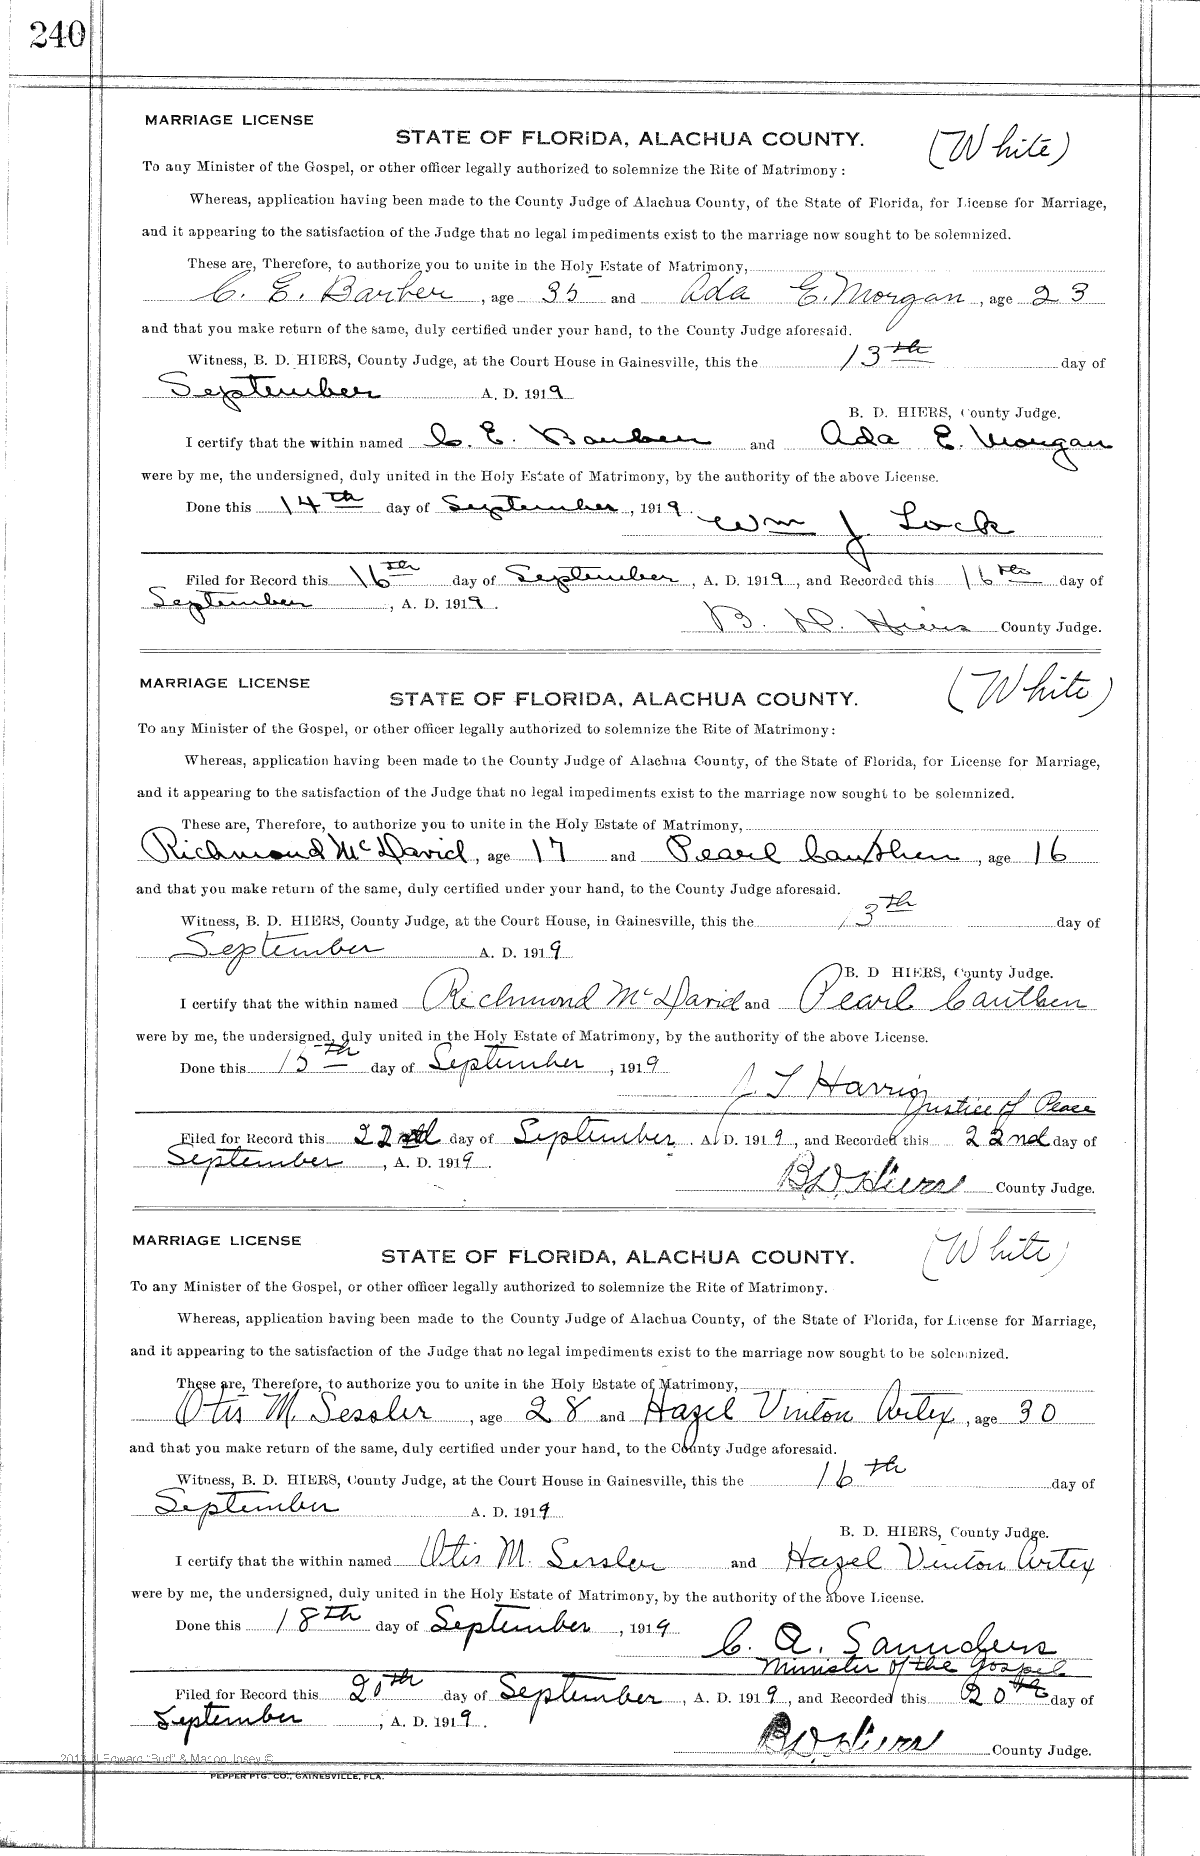 240
MARRIAGE LICENSE
STATE OF FLORIDA, ALACHUA COUNTY.
(White)
To any Minister of the Gospel, or other officer legally authorized to solemnize the Rite of Matrimony:
Whereas, application having been made to the County Judge of Alachua County, of the State of Florida, for License for Marriage,
and it appearing to the satisfaction of the Judge that no legal impediments exist to the marriage now sought to be solemnized.
These are, Therefore, to authorize you to unite in the Holy Estate of Matrimony,
C. E. Barber, age 35 and Ada E. Morgan, age 23
and that you make return of the same, duly certified under your hand, to the County Judge aforesaid.
Witness, B. D. HIERS, County Judge, at the Court House in Gainesville, this the 13th day of
September A. D. 1919
B. D. HIERS, County Judge.
I certify that the within named C. E. Barber and Ada E. Morgan
were by me, the undersigned, duly united in the Holy Estate of Matrimony, by the authority of the above License.
Done this 14th day of September, 1919
Wm J. Lock
Filed for Record this 16th day of September, A. D. 1919, and Recorded this 16th day of
September, A. D. 1919.
B. D. Hiers County Judge.
MARRIAGE LICENSE
STATE OF FLORIDA, ALACHUA COUNTY.
(White)
To any Minister of the Gospel, or other officer legally authorized to solemnize the Rite of Matrimony:
Whereas, application having been made to the County Judge of Alachua County, of the State of Florida, for License for Marriage,
and it appearing to the satisfaction of the Judge that no legal impediments exist to the marriage now sought to be solemnized.
These are, Therefore, to authorize you to unite in the Holy Estate of Matrimony,
Richmond McDavid, age 17 and Pearl Cauthen, age 16
and that you make return of the same, duly certified under your hand, to the County Judge aforesaid.
Witness, B. D. HIERS, County Judge, at the Court House, in Gainesville, this the 13th day of
September A. D. 1919
B. D HIERS, County Judge.
I certify that the within named Richmond McDavid and Pearl Cauthen
were by me, the undersigned, duly united in the Holy Estate of Matrimony, by the authority of the above License.
Done this 15th day of September, 1919
J T Harris
Justice of Peace
Filed for Record this 22nd day of September A. D. 1919, and Recorded this 22nd day of
September, A. D. 1919.
B D Hiers County Judge.
MARRIAGE LICENSE
STATE OF FLORIDA, ALACHUA COUNTY.
(White)
To any Minister of the Gospel, or other officer legally authorized to solemnize the Rite of Matrimony.
Whereas, application having been made to the County Judge of Alachua County, of the State of Florida, for License for Marriage,
and it appearing to the satisfaction of the Judge that no legal impediments exist to the marriage now sought to be solemnized.
These are, Therefore, to authorize you to unite in the Holy Estate of Matrimony,
Otis M. Sessler, age 28 and Hazel Vinton Artex, age 30
and that you make return of the same, duly certified under your hand, to the County Judge aforesaid.
Witness, B. D. HIERS, County Judge, at the Court House in Gainesville, this the 16th day of
September A. D. 1919
B. D. HIERS, County Judge.
I certify that the within named Otis M. Sessler and Hazel Vinton Artex
were by me, the undersigned, duly united in the Holy Estate of Matrimony, by the authority of the above License.
Done this 18th day of September, 1919
C. A. Saunders
Minister of the Gospel
Filed for Record this 20th day of September, A. D. 1919, and Recorded this 20th day of
September, A. D. 1919.
B D Hiers County Judge.
Edward "Bud" & Macon Josey ©
PEPPER PTG. CO., GAINESVILLE, FLA.